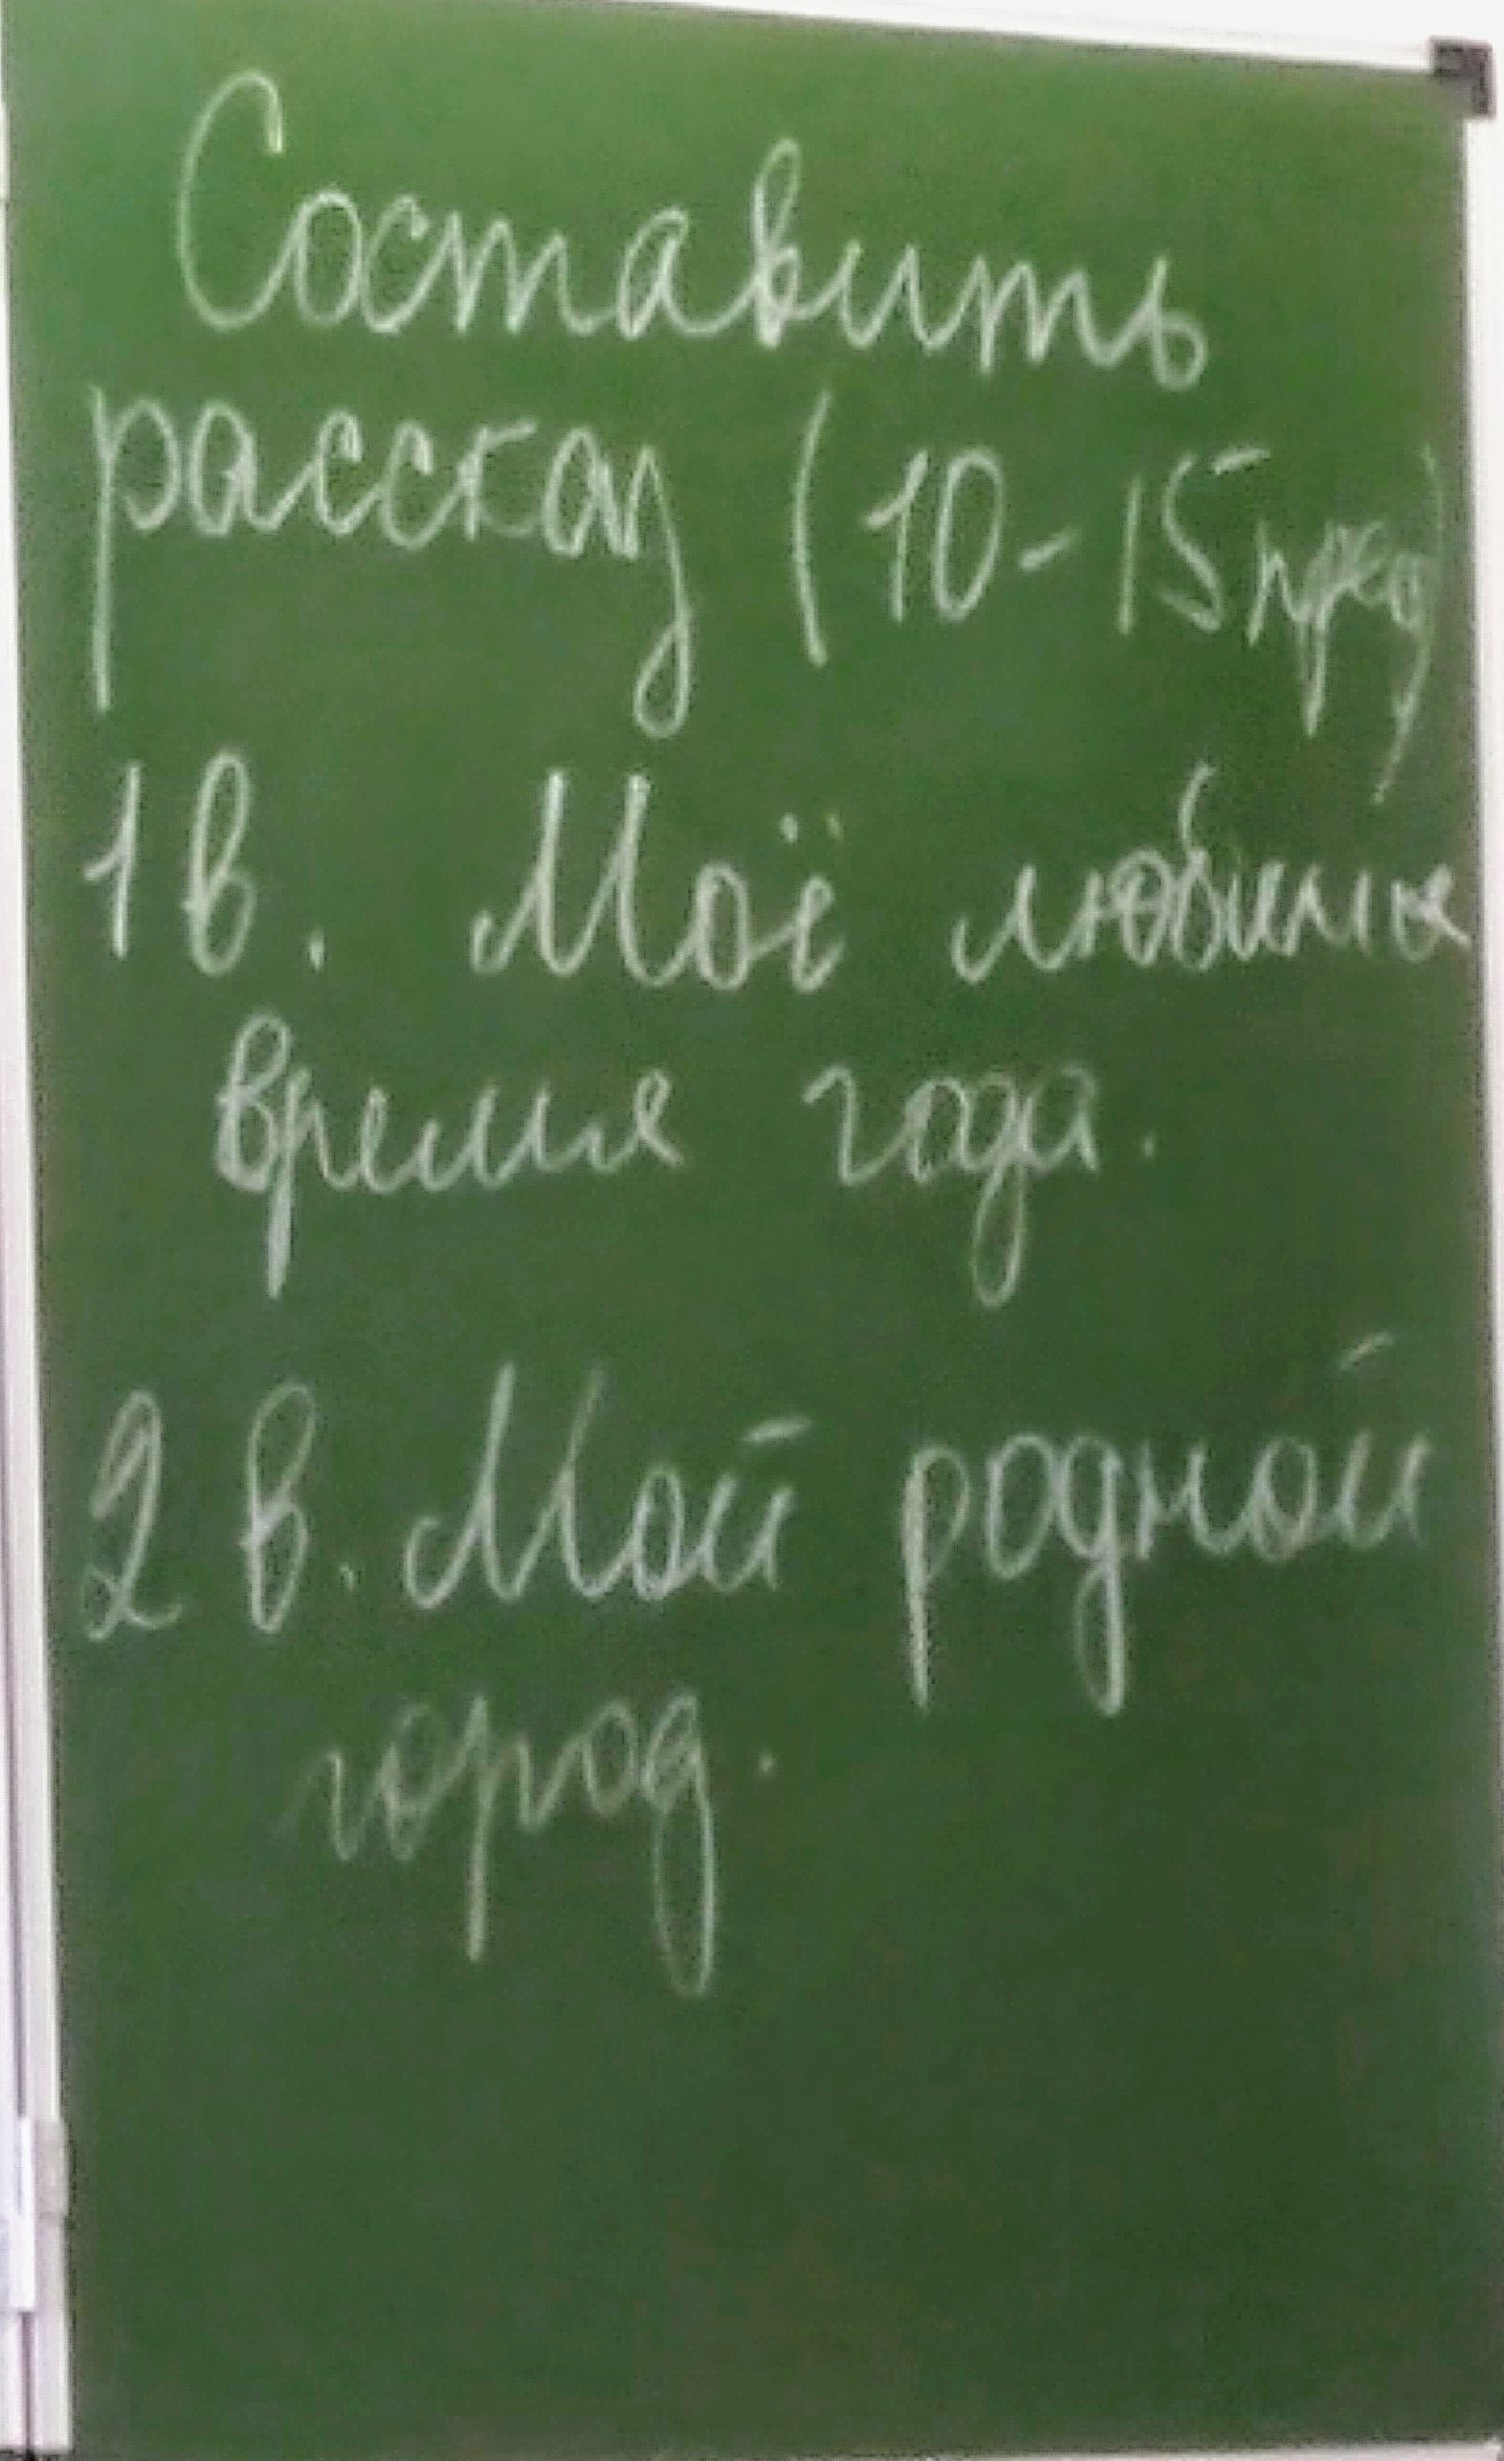 Составить
рассказ (10-15 пред)
1 в. Моё любимое
время года.
2 в. Мой родной
город.